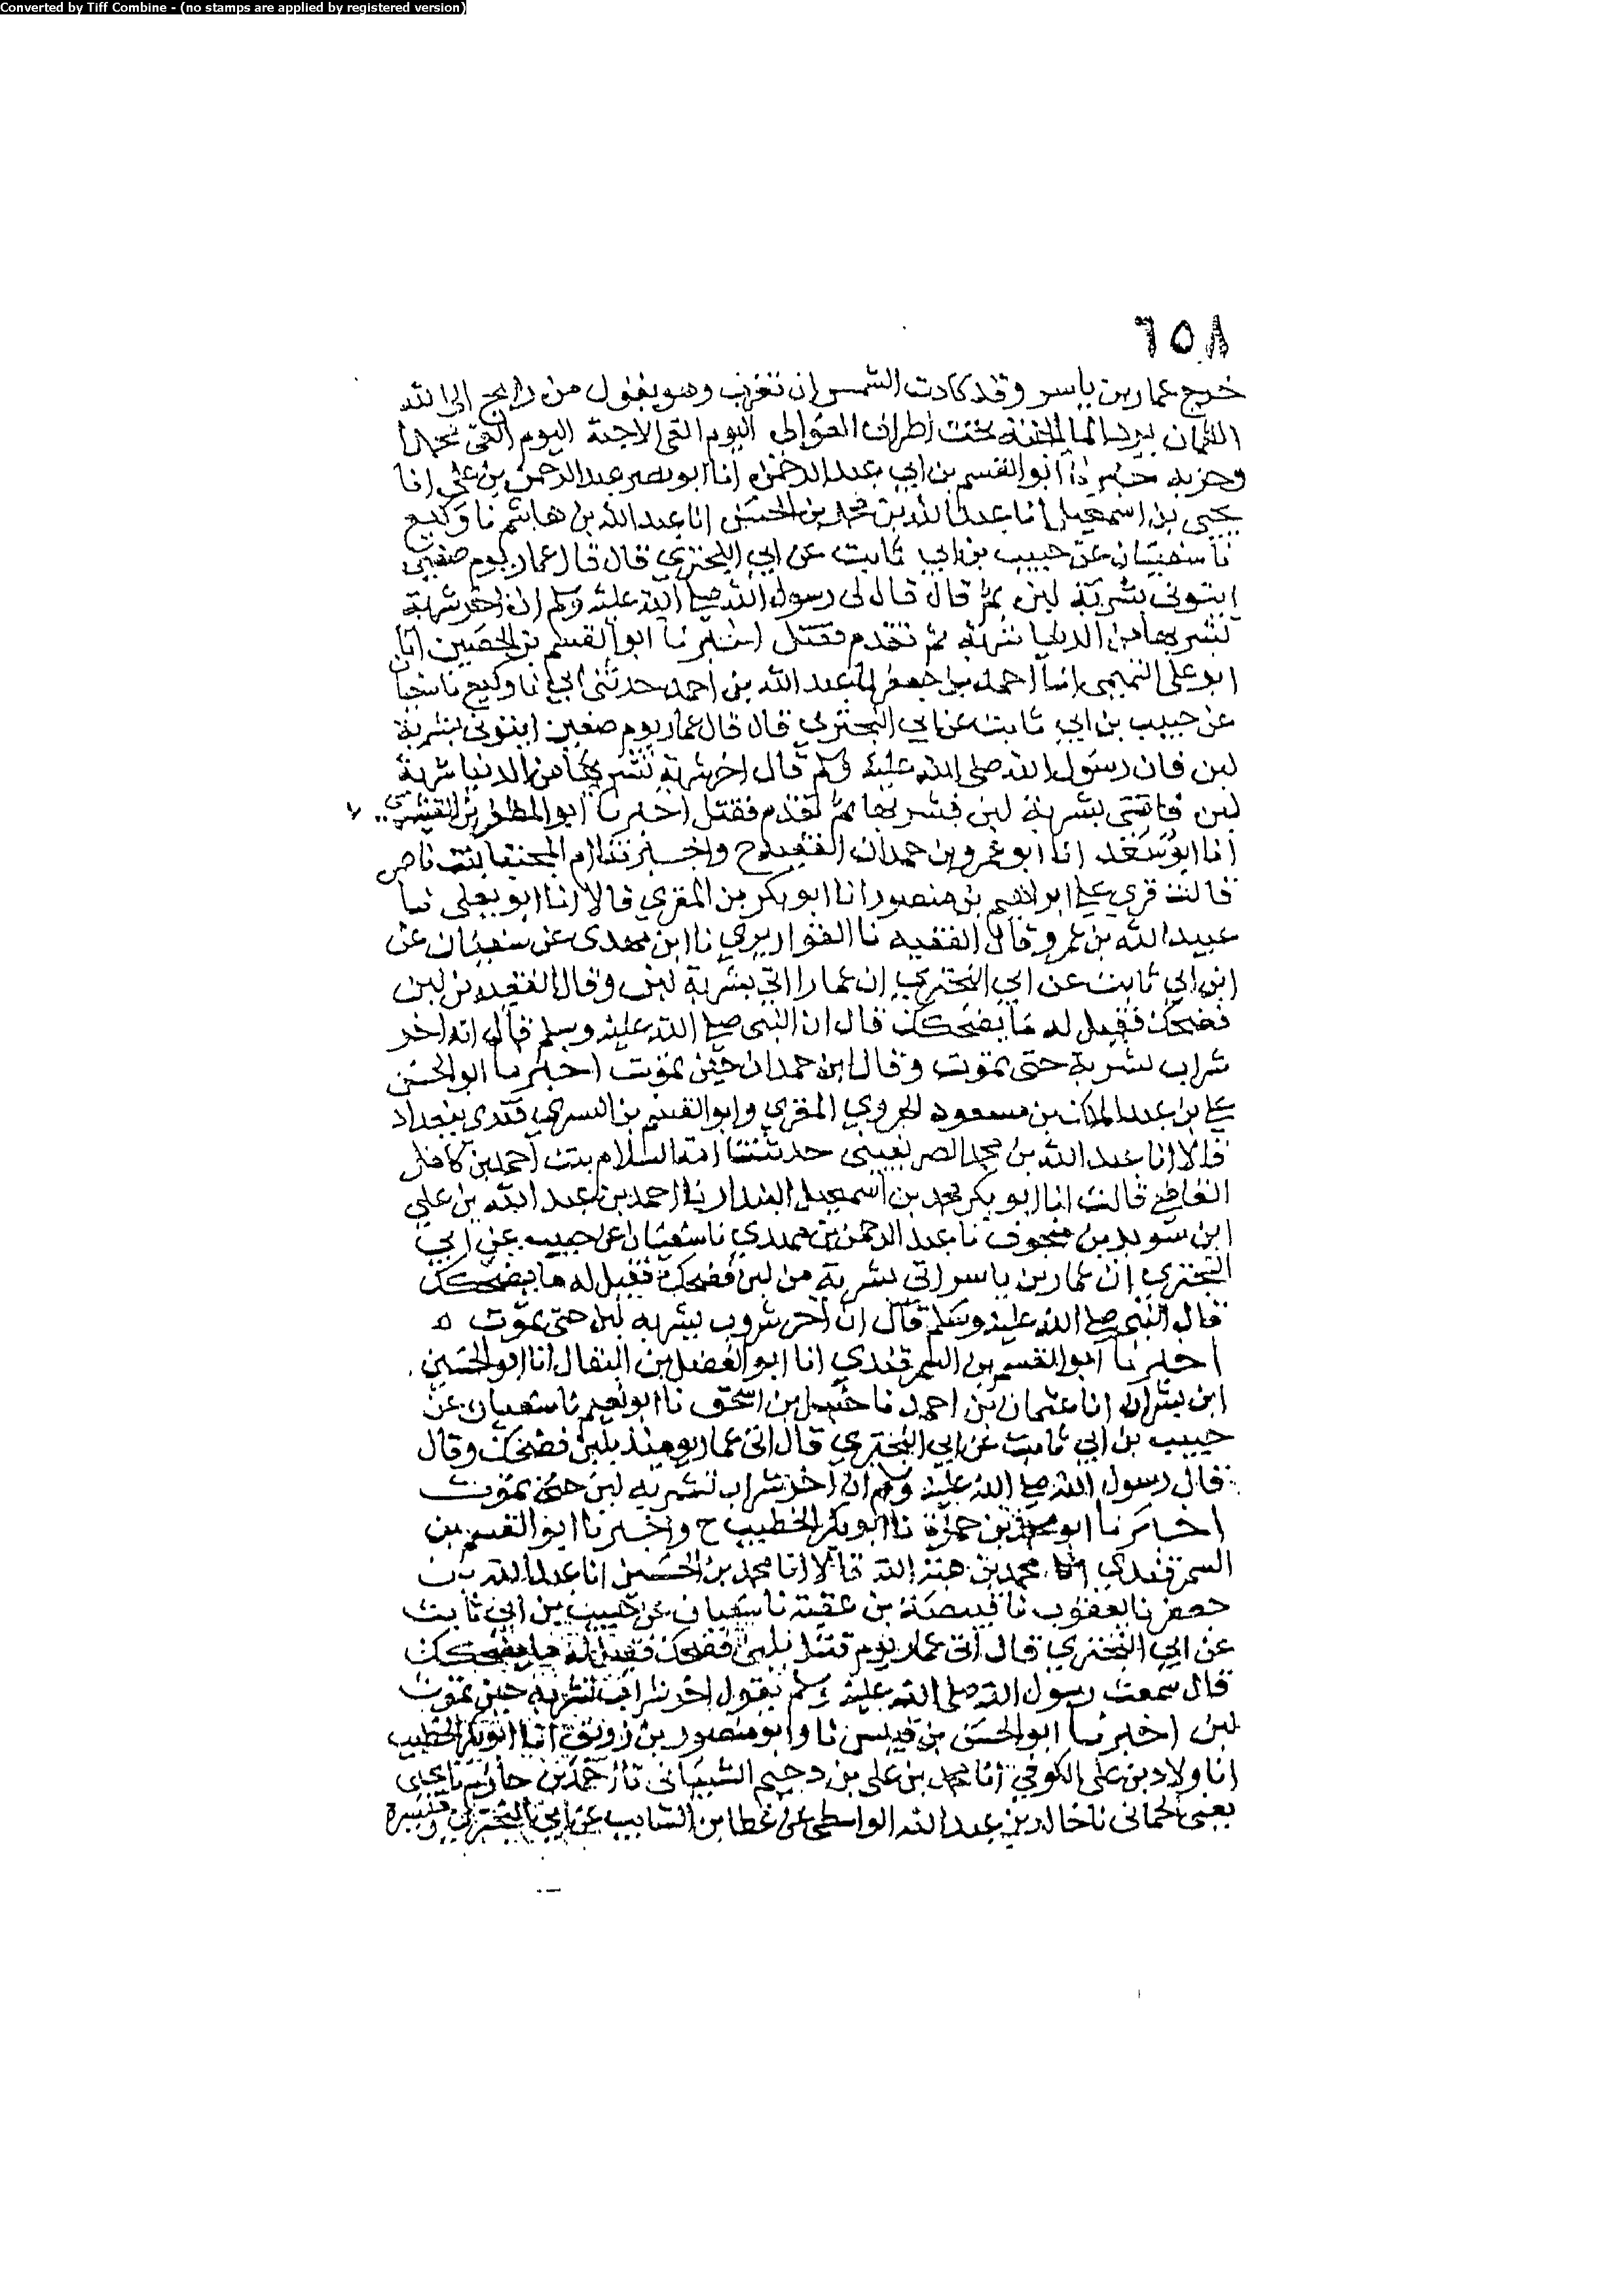 Converted by Tiff Combine - (no stamps are applied by registered version)
٦٥٨
خرج عمار بن ياسر وقد كادت الشمس ان تغرب وهو يقول من رايح الى الله
الظمان يرد الما الجنة تحت اطراف العوالي اليوم القى الاحبة اليوم القى محمدا
وحزبه اخبرنا ابو القسم بن ابي عبد الرحمن انا ابو نصر عبد الرحمن بن علي انا
يحيى بن اسمعيل انا عبد الله بن محمد بن الحسن انا عبد الله بن هاشم نا وكيع
نا سفيان عن حبيب بن ابي ثابت عن ابي البختري قال قال عمار يوم صفين
ايتوني بشربة لبن ثم قال قال لي رسول الله صلى الله عليه وسلم ان اخر شربة
تشربها من الدنيا شربة ثم تقدم فقتل اخبرنا ابو القسم بن الحصين انا
ابو علي التميمي انا احمد بن جعفر نا عبد الله بن احمد حدثني ابي نا وكيع نا سفيان
عن حبيب بن ابي ثابت عن ابي البختري قال قال عمار يوم صفين ايتوني بشربة
لبن فان رسول الله صلى الله عليه وسلم قال اخر شربة تشربها من الدنيا شربة
لبن فاتي بشربة لبن فشربها ثم تقدم فقتل اخبرنا ابو المظفر بن القشيري
انا ابو سعد انا ابو عمرو بن حمدان الفقيه ح واخبرتنا ام المجتبا بنت ناصر
قالت قري على ابرهيم بن منصور انا ابو بكر بن المقري قالا انا ابو يعلى نا
عبيد الله بن عمر وقال الفقيه نا القواريري نا ابن مهدي عن سفيان عن
ابن ابي ثابت عن ابي البختري ان عمارا اتي بشربة لبن وقال الفقيه من لبن
فضحك فقيل له ما يضحكك قال ان النبي صلى الله عليه وسلم قال انه اخر
شراب تشربه حتى تموت وقال ابن حمدان حين تموت اخبرنا ابو الحسن
علي بن عبد الملك بن مسعود المقري وابو القسم بن السمرقندي ببغداد
قالا انا عبد الله بن محمد الصريفيني حدثتنا امة السلام بنت احمد بن كامل
القاضي قالت انا ابو بكر محمد بن اسمعيل البندار نا احمد بن عبد الله بن علي
ابن سويد بن منجوف نا عبد الرحمن بن مهدي نا سفيان عن حبيب عن ابي
البختري ان عمار بن ياسر اتي بشربة من لبن فضحك فقيل له ما يضحكك
قال النبي صلى الله عليه وسلم قال ان اخر شروب يشربه لبن حتى يموت ه
اخبرنا ابو القسم بن السمرقندي انا ابو الفضل بن البقال انا ابو الحسين
ابن بشران انا عثمان بن احمد نا حنبل بن اسحق نا ابو نعيم نا سفيان عن
حبيب بن ابي ثابت عن ابي البختري قال اتي عمار يومئذ بلبن فضحك وقال
قال رسول الله صلى الله عليه وسلم ان اخر شراب تشربه لبن حتى تموت
اخبرنا ابو محمد بن حمزة نا ابو بكر الخطيب ح واخبرنا ابو القسم بن
السمرقندي انا محمد بن هبة الله قالا انا محمد بن الحسين انا عبد الله بن
جعفر نا يعقوب نا قبيصة بن عقبة نا سفيان عن حبيب بن ابي ثابت
عن ابي البختري قال اتي عمار يوم قتل بلبن فضحك فقيل له ما يضحكك
قال سمعت رسول الله صلى الله عليه وسلم يقول اخر شراب تشربه حين تموت
لبن اخبرنا ابو الحسن بن قبيس نا وابو منصور بن زريق انا ابو بكر الخطيب
انا ولاد بن علي الكوفي انا محمد بن علي بن دحيم الشيباني نا احمد بن حازم نا يحيى
يعني الحماني نا خالد بن عبد الله الواسطي عن عطا بن السايب عن ابي البختري وميسرة